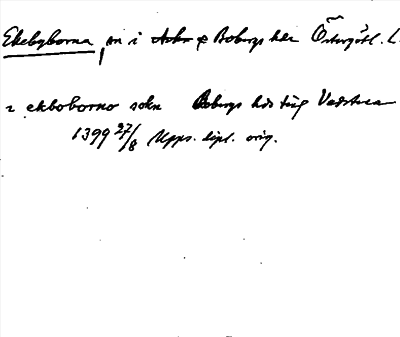 Ekebyborna, sn i Aska & Bobergs hdr Östergötl. L.
2 ekboborno sokn Bobergs hds ting Vadstena
1399 27/8 Upps. dipl. orig.